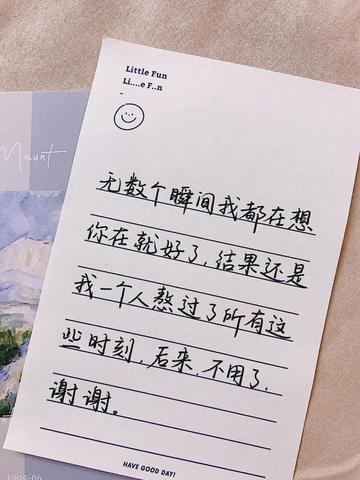 Little Fun
Li....e F..n
无数个瞬间我都在想
你在就好了，结果还是
我一个人熬过了所有这
些时刻，后来，不用了，
谢谢。
HAVE GOOD DAY!
Mount
1904-06